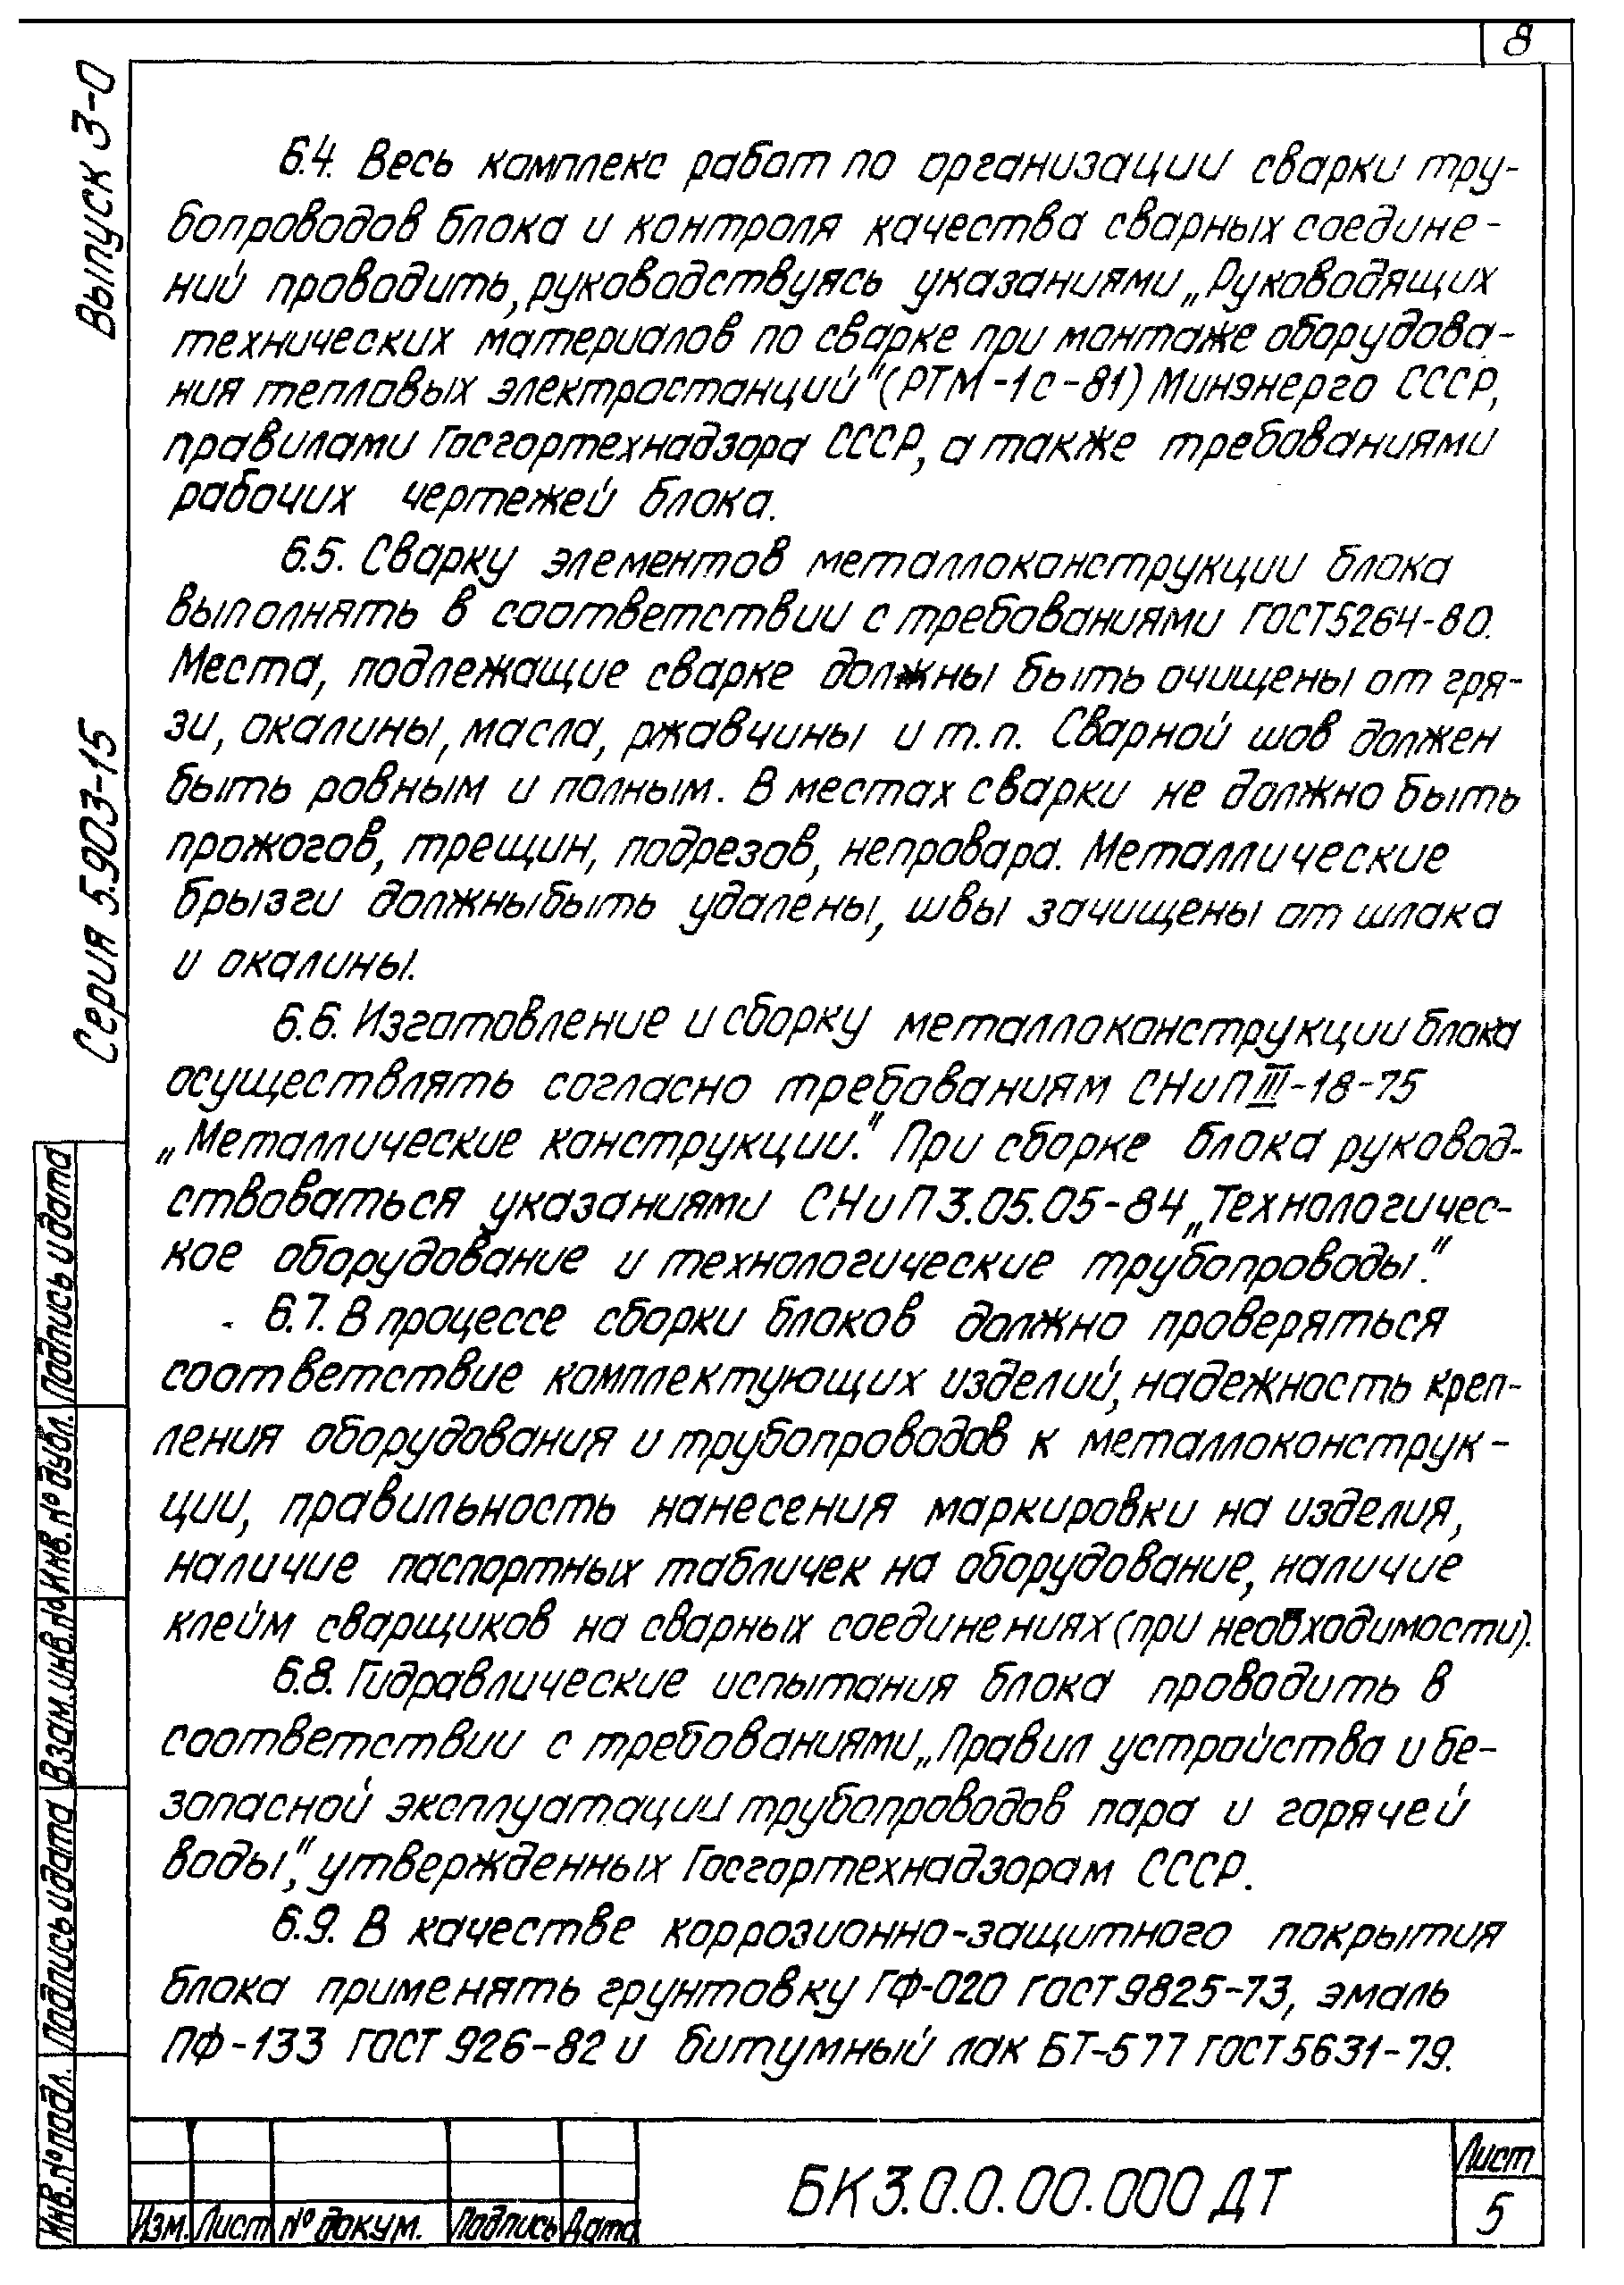 8
Выпуск 3-0
Серия 5.903-15
6.4. Весь комплекс работ по организации сварки тру-
бопроводов блока и контроля качества сварных соедине-
ний проводить, руководствуясь указаниями „Руководящих
технических материалов по сварке при монтаже оборудова-
ния тепловых электростанций" (РТМ-1с-81) Минэнерго СССР,
правилами Госгортехнадзора СССР, а также требованиями
рабочих чертежей блока.
6.5. Сварку элементов металлоконструкции блока
выполнять в соответствии с требованиями ГОСТ 5264-80.
Места, подлежащие сварке должны быть очищены от гря-
зи, окалины, масла, ржавчины и т.п. Сварной шов должен
быть ровным и полным. В местах сварки не должно быть
прожогов, трещин, подрезов, непровара. Металлические
брызги должны быть удалены, швы зачищены от шлака
и окалины.
6.6. Изготовление и сборку металлоконструкции блока
осуществлять согласно требованиям СНиП III-18-75
„Металлические конструкции." При сборке блока руковод-
ствоваться указаниями СНиП 3.05.05-84 „Технологичес-
кое оборудование и технологические трубопроводы."
6.7. В процессе сборки блоков должно проверяться
соответствие комплектующих изделий, надежность креп-
ления оборудования и трубопроводов к металлоконструк-
ции, правильность нанесения маркировки на изделия,
наличие паспортных табличек на оборудование, наличие
клейм сварщиков на сварных соединениях (при необходимости).
6.8. Гидравлические испытания блока проводить в
соответствии с требованиями „Правил устройства и бе-
зопасной эксплуатации трубопроводов пара и горячей
воды", утвержденных Госгортехнадзорам СССР.
6.9. В качестве коррозионно-защитного покрытия
блока применять грунтовку ГФ-020 ГОСТ 9825-73, эмаль
ПФ-133 ГОСТ 926-82 и битумный лак БТ-577 ГОСТ 5631-79.
Подпись и дата
Инв. № дубл.
Взам. инв. №
Подпись и дата
Инв. № подл.
Изм. Лист № докум. Подпись Дата
БК 3.0.0.00.000 ДТ
Лист
5